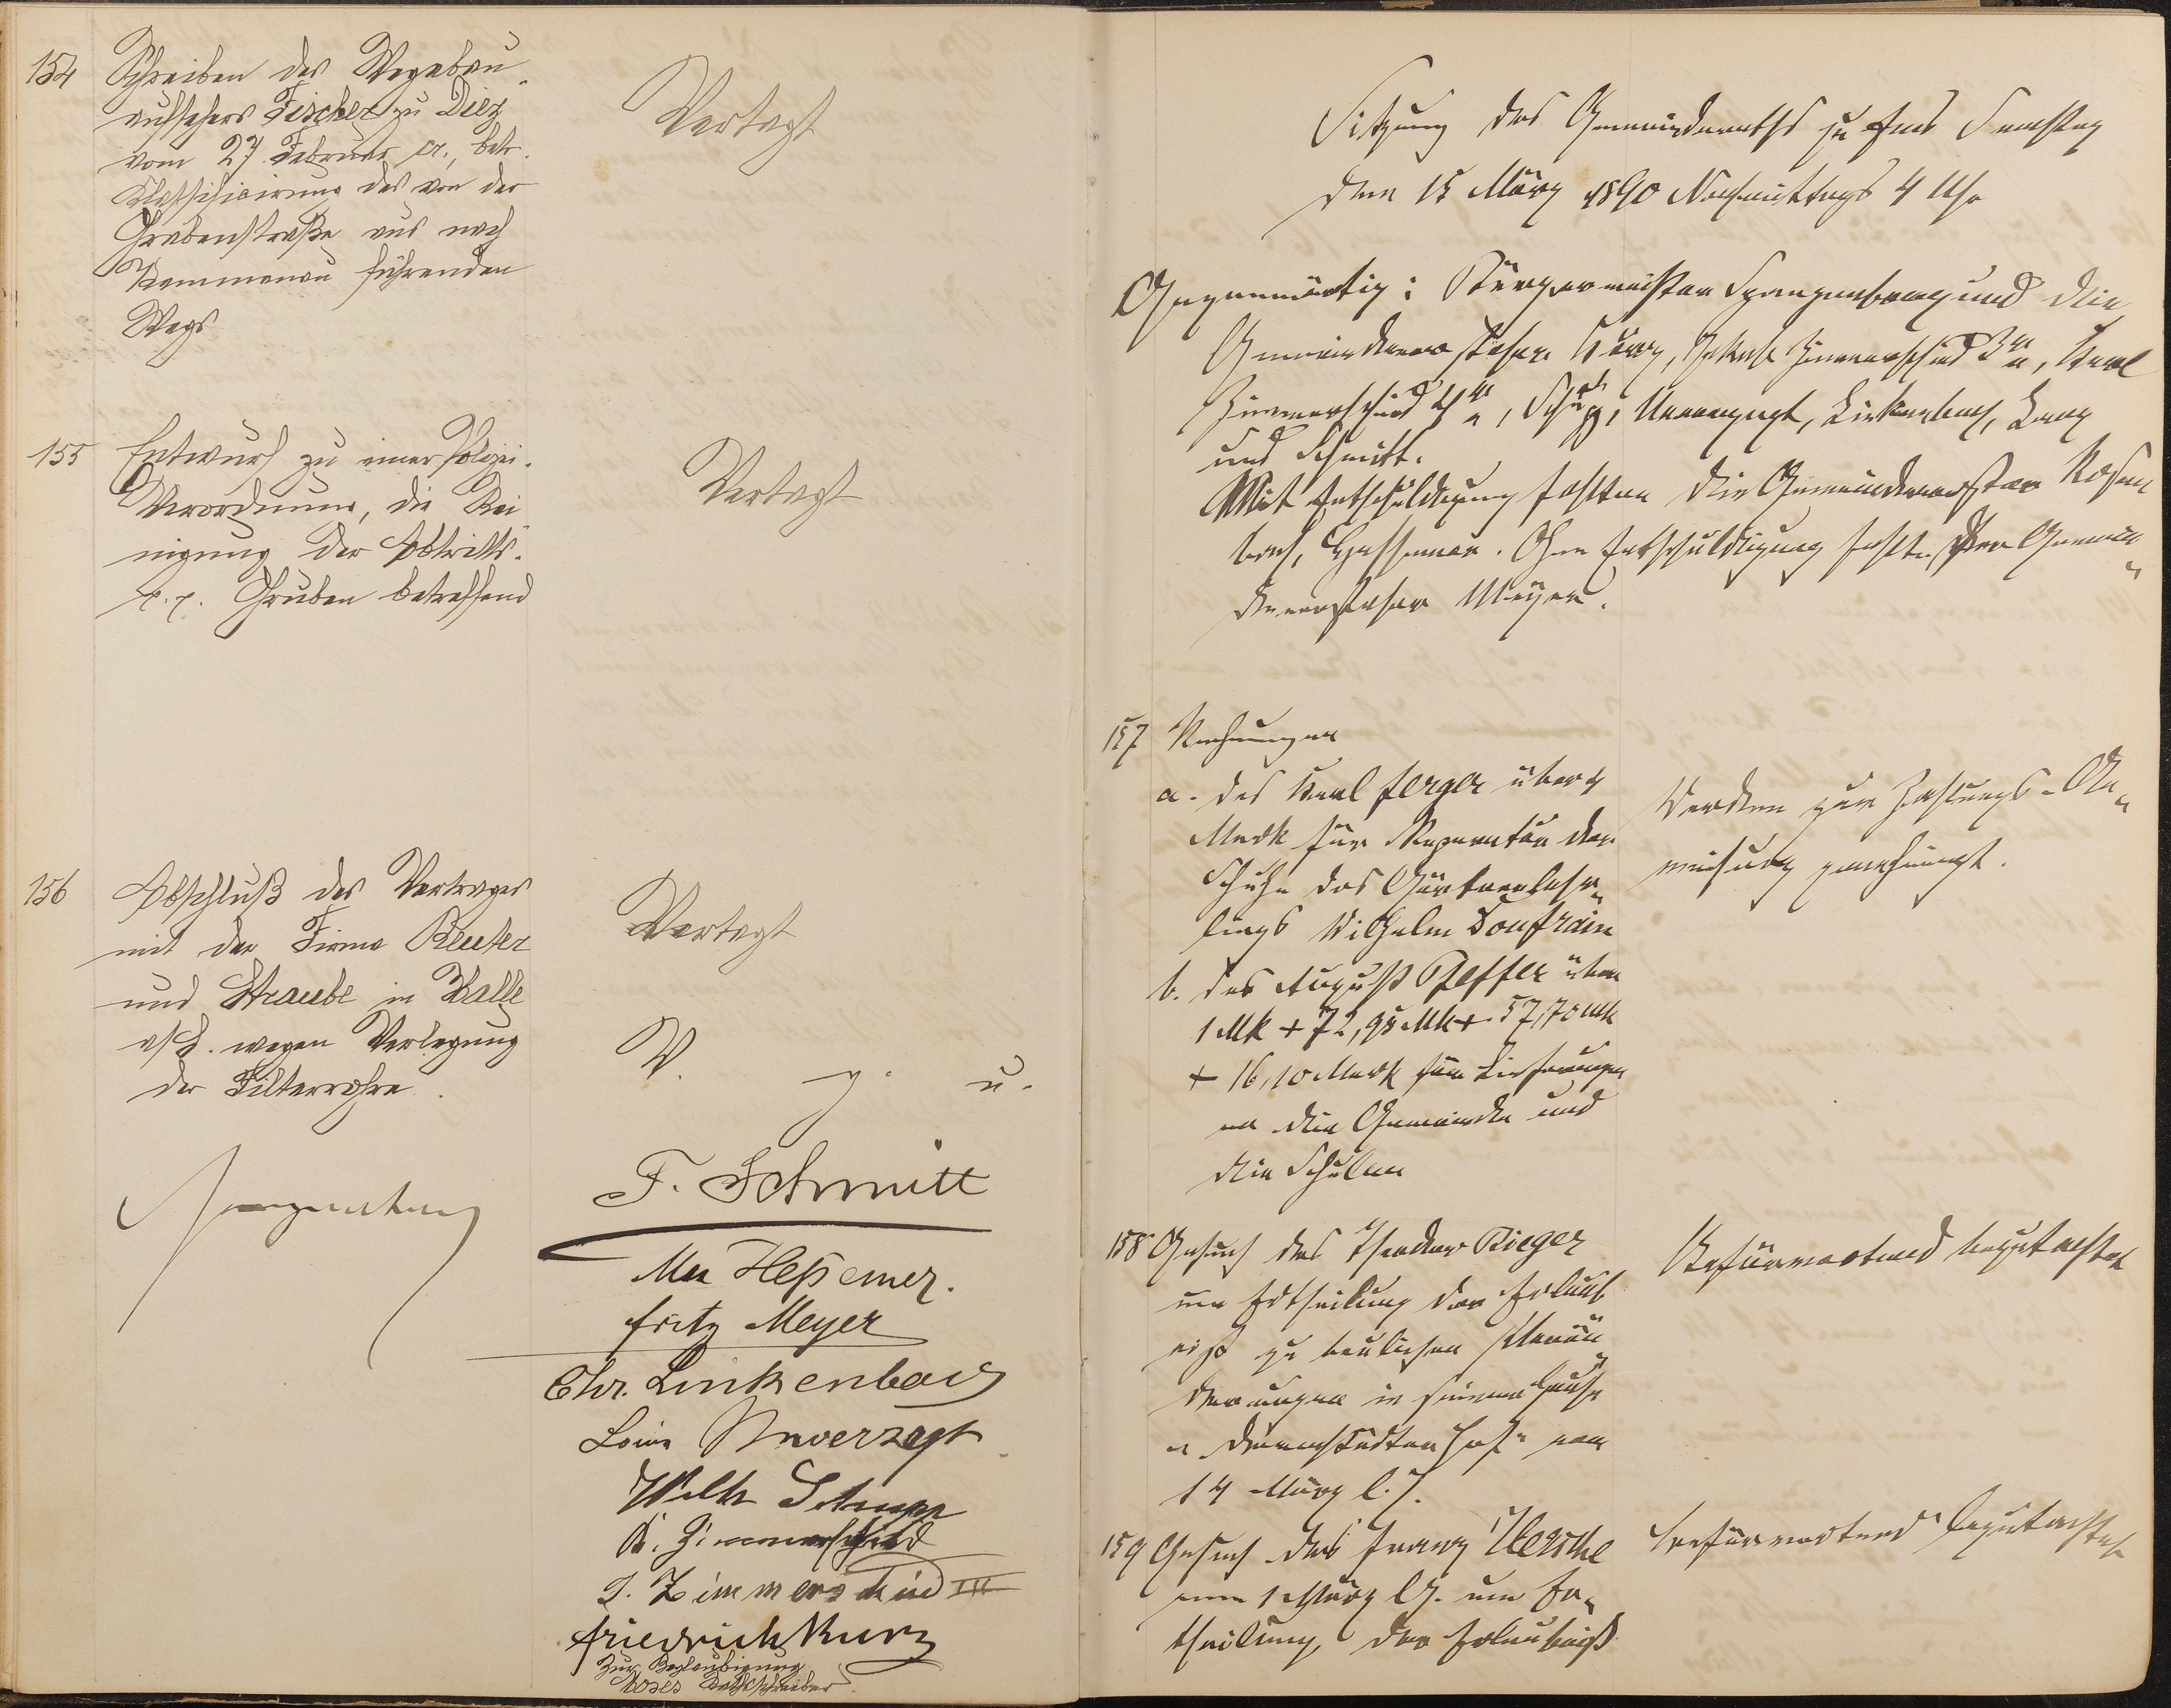 154 Schreiben des Wegebau-
aufsehers Fischer zu Diez
vom 27. Februar cr., betr.
Klassifizirung des von der
Grabenstraße aus nach
Kemmenau führenden
Wegs
Vertagt
155 Entwurf zu einer Polizei-
Verordnung, die Rei-
nigung der Abtritts-
p. p. Gruben betreffend
Vertagt
156 Abschluß des Vertrages
mit der Firma Reuter
und Straube in Halle
a/S. wegen Verlegung
der Filterrohre.
Vertagt
V. g. u.
Spangenberg
F. Schmitt
Heßemer.
Fritz Meyer
Chr. Linkenbach
Louis Unverzagt
Wilh Schupp
K. Zimmerschied
J. Zimmerschied III
Friedrich Kurz
Zur Beglaubigung
Rathschreiber
Sitzung des Gemeinderaths zu Ems Samstag
den 15 März 1890 Nachmittags 4 Uhr
Gegenwärtig: Bürgermeister Spangenberg und die
Gemeindevorsteher Kurz, Jakob Zimmerschied 3r, Karl
Zimmerschied 4r, Schupp, Unverzagt, Linkenbach, Lang
und Schmitt.
Mit Entschuldigung fehlten die Gemeindevorsteher Rosen
bach, Hessemer. Ohne Entschuldigung fehlte der Gemein-
devorsteher Meyer.
157 Rechnungen
a. des Karl Ferger über 4
Mark für Reparatur der
Schuhe des Gärtnerlehr-
lings Wilhelm Bonfrain
b. des August Pfeffer über
1 Mk + 72,95 Mk + 57,70 Mk
+ 16,10 Mark für Lieferungen
an die Gemeinde und
die Schulen
Werden zur Zahlungs-An-
weisung genehmigt.
158 Gesuch des Theodor Rieger
um Ertheilung der Erlaub
niß zu baulichen Verän-
derungen in seinem Hause
"Darmstädter Hof" vom
14 März l. J.
Befürwortend begutachtet
159 Gesuch des Franz
vom 1 März l. J. um Er-
theilung der Erlaubniß
Befürwortend begutachtet